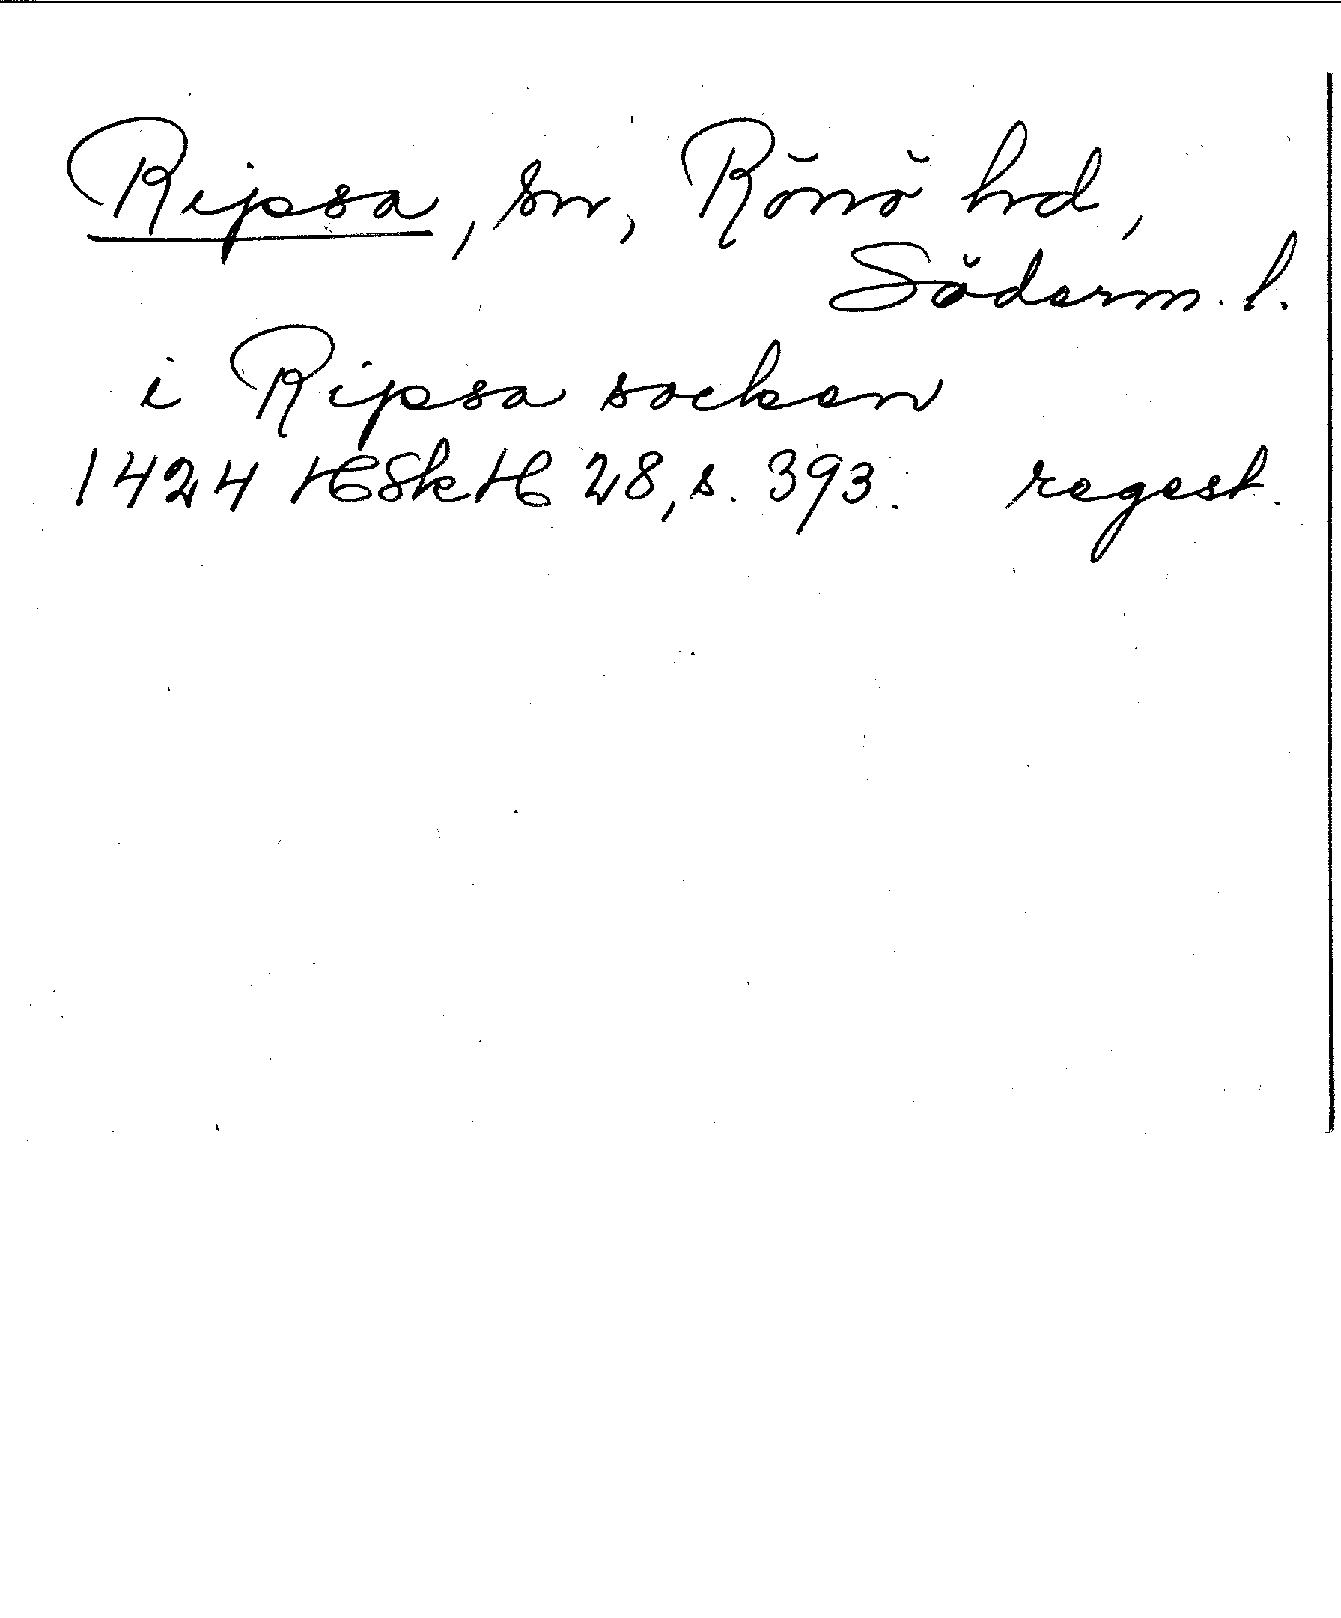 Ripsa, sn, Rönö hd,
Söderm. l.
i Ripsa socken
1424 HSkH 28, s. 393. regest.